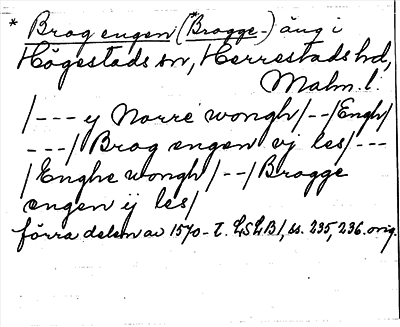 * Brag engen (*Bragge-) äng i
Högestads sn, Herrestads hd,
Malm. l.
/--- y Norre wongh/--/Engh/
---/ Brag engen vj les/---
/Enghe wongh/--/Bragge
engen ij les/
förra delen av 1570-t. LSLB1, ss. 235, 236. orig.